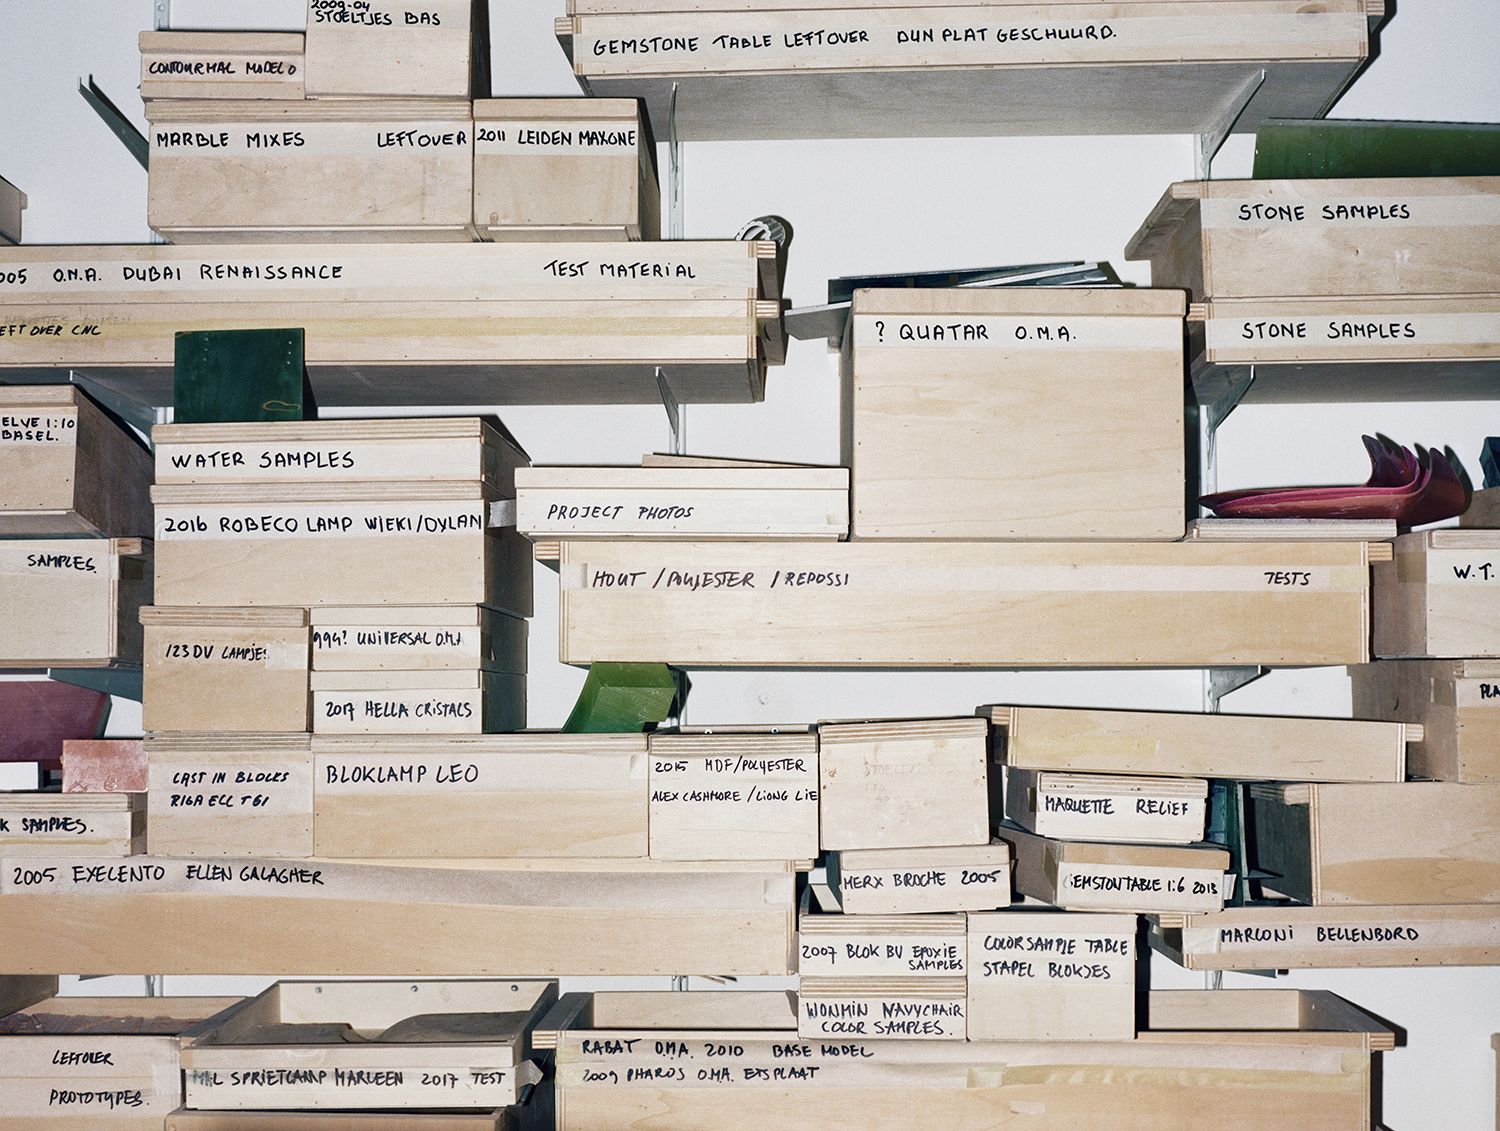 2009-04
STOELTJES BAS
GEMSTONE TABLE LEFTOVER DUN PLAT GESCHUURD.
CONTOURMAL MODEL
MARBLE MIXES LEFTOVER
2011 LEIDEN MAXONE
STONE SAMPLES
005 O.M.A. DUBAI RENAISSANCE TEST MATERIAL
EFTOVER CNC
? QUATAR O.M.A.
STONE SAMPLES
ELVE 1:10
BASEL.
WATER SAMPLES
PROJECT PHOTOS
2016 ROBECO LAMP WIEKI/DYLAN
SAMPLES.
HOUT / POLYESTER / REPOSSI TESTS
W.T.
123DV LAMPJE:
994? UNIVERSAL O.M.A
2017 HELLA CRISTALS
PLA
CAST IN BLOCKS
BLOKLAMP LEO
2015 MDF/POLYESTER
ALEX CASHMORE / LIONG LIE
MAQUETTE RELIEF
K SAMPLES.
2005 EXELENTO ELLEN GALAGHER
MERX BROCHE 2005
GEMSTONTABLE 1:6 2013
MARCONI BELLENBORD
2007 BLOK BV EPOXIE
SAMPLES
COLORSAMPLE TABLE
STAPEL BLOKJES
WONMIN NAVYCHAIR
COLOR SAMPLES.
LEFTOVER
PROTOTYPES.
MAL SPRIETLAMP MARLEEN 2017 TEST
RABAT O.M.A. 2010 BASE MODEL
2009 PHAROS O.M.A. ETSPLAAT